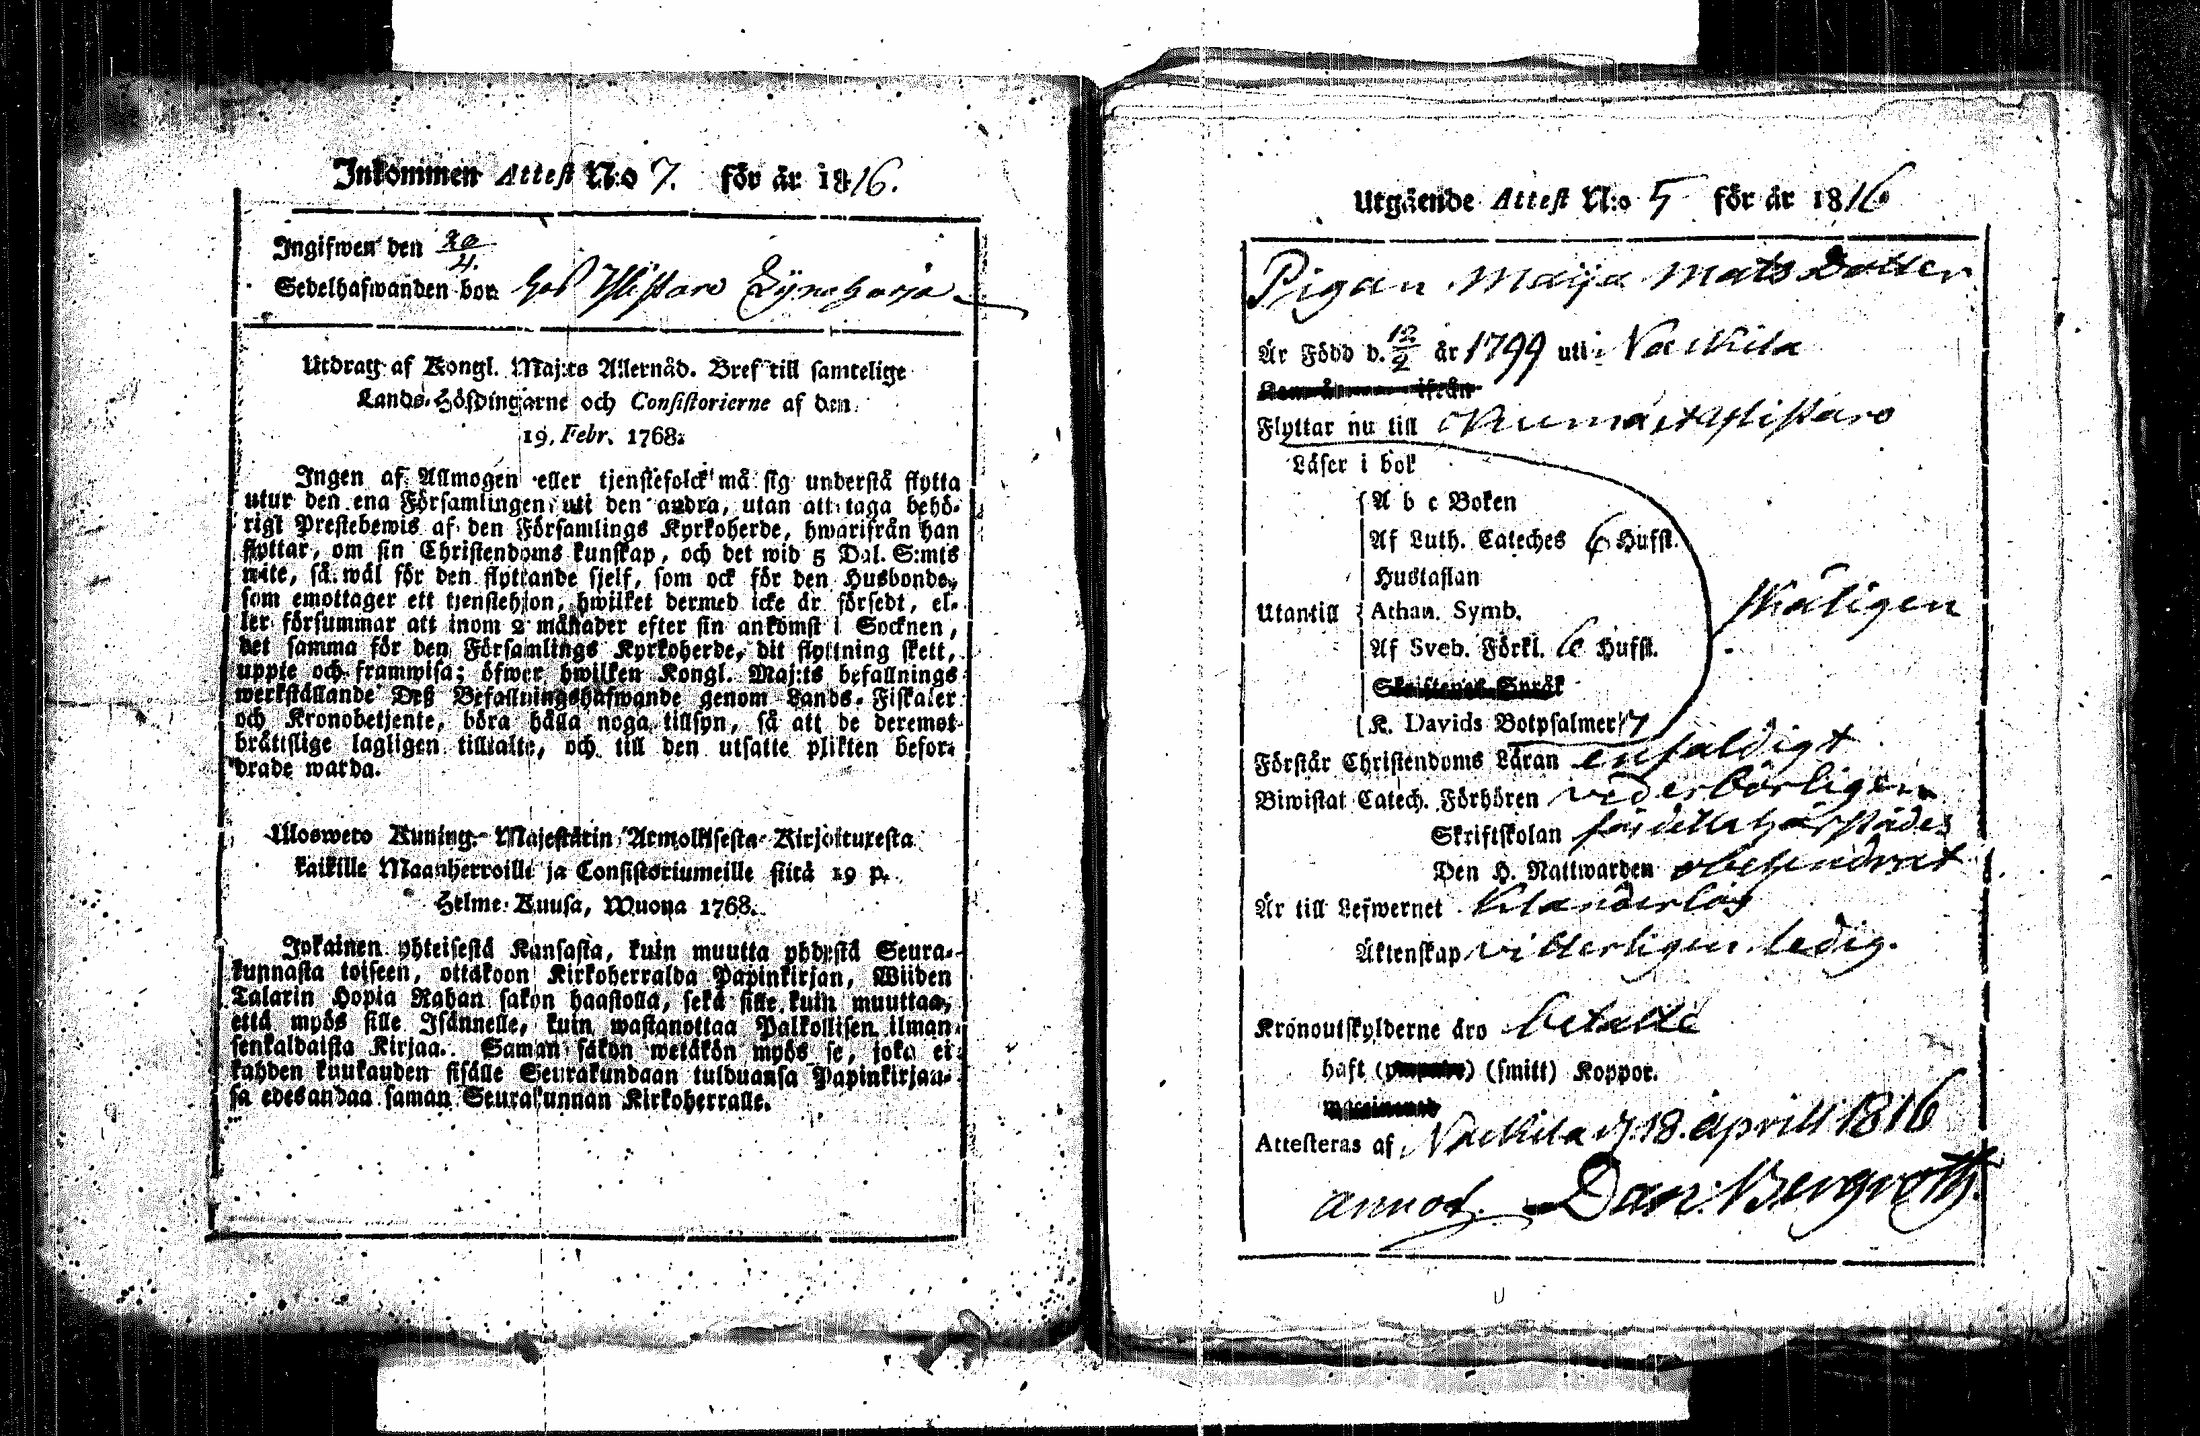 Inkommen Attest N:o 7. för år 1816.
Ingifwen den 20/4.
Sedelhafwanden bor hos Ylistaro
Utdrag af Kongl. Maj:ts Allernåd. Bref till samtelige
Lands-Höfdingarne och Consistorierne af den
19. Febr. 1768.
Ingen af Allmogen eller tjenstefolck må sig understå flytta
utur den ena Församlingen uti den andra, utan att taga behö-
rigt Prestebewis af den Församlings Kyrkoherde, hwarifrån han
flyttar, om sin Christendoms kunskap, och det wid 5 Dal. S:mts
wite, så wäl för den flyttande sjelf, som ock för den Husbonde,
som emottager ett tjenstehjon, hwilket dermed icke är försedt, el-
ler försummar att inom 2 månader efter sin ankomst i Socknen,
det samma för den Församlings Kyrkoherde, dit flyttning skett,
uppte och framwisa; öfwer hwilken Kongl. Maj:ts befallnings
werkställande Deß Befallningshafwande genom Lands-Fiskaler
och Kronobetjente, böra hålla noga tillsyn, så att de deremot
bråttslige lagligen tilltalte, och till den utsatte plikten befor-
drade warda.
Ulosweto Kuning. Majestätin Armollisesta Kirjoituxesta
kaikille Maanherroille ja Consistoriumeille siitä 19 p.
Helme-Kuusa, Wuona 1768.
Jokainen yhteisestä Kansasta, kuin muutta yhdystä Seura-
kunnasta toiseen, ottakoon Kirkoherralda Papinkirjan, Wiiden
Talarin Hopia Rahan sakon haastolla, sekä sille kuin muuttaa,
että myös sille Isännelle, kuin wastanottaa Palkollisen ilman
senkaldaista Kirjaa. Saman sakon wetäkön myös se, joka ei
kahden kuukauden sisälle Seurakundaan tulduansa Papinkirjaan-
sa edesandaa saman Seurakunnan Kirkoherralle.
Utgående Attest N:o 5 för år 1816
Pigan Maija Mats Dotter
År Född d. 12/2 år 1799 uti Nackila
Flyttar nu till Ylistaro
Läser i bok
A b c Boken
Af Luth. Cateches 6 Hufst.
Hustaflan
Utantill Athan. Symb. skäligen
Af Sveb. Förkl. 6 Hufst.
Skriftenes Språk
K. Davids Botpsalmer 7
Förstår Christendoms Läran enfaldigt
Biwistat Catech. Förhören vederbörligen
Skriftskolan
Den H. Nattwarden obehindrat
Är till Lefwernet klanderlös
Äktenskap vitterligen ledig.
Kronoutskylderne äro betalte
haft (smitt) Koppor.
Attesteras af Nackila d. 18. aprill 1816
annot. Dan: Bergroth.